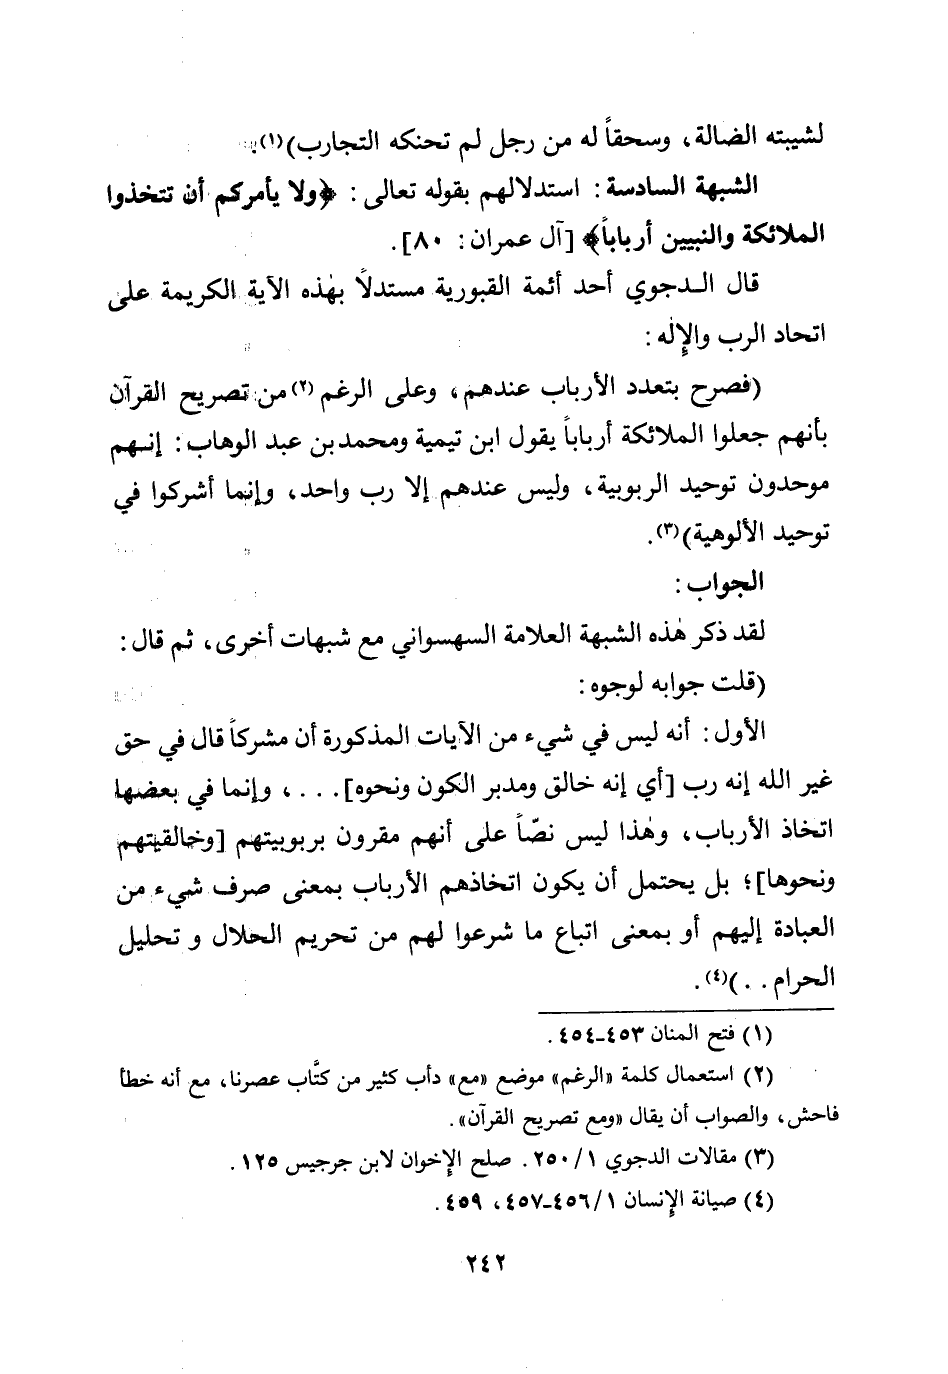 لشيبته الضالة، وسحقاً له من رجل لم تحنكه التجارب)(١).
الشبهة السادسة: استدلالهم بقوله تعالى: ﴿ولا يأمركم أن تتخذوا
الملائكة والنبيين أرباباً﴾ [آل عمران: ٨٠].
قال الـدجوي أحد أئمة القبورية مستدلاً بهٰذه الآية الكريمة على
اتحاد الرب والإلٰه:
(فصرح بتعدد الأرباب عندهم، وعلى الرغم(٢) من تصريح القرآن
بأنهم جعلوا الملائكة أرباباً يقول ابن تيمية ومحمد بن عبد الوهاب: إنـهم
موحدون توحيد الربوبية، وليس عندهم إلا رب واحد، وإنما أشركوا في
توحيد الألوهية)(٣).
الجواب:
لقد ذكر هٰذه الشبهة العلامة السهسواني مع شبهات أخرى، ثم قال:
(قلت جوابه لوجوه:
الأول: أنه ليس في شيء من الآيات المذكورة أن مشركاً قال في حق
غير الله إنه رب [أي إنه خالق ومدبر الكون ونحوه]...، وإنما في بعضها
اتخاذ الأرباب، وهٰذا ليس نصّاً على أنهم مقرون بربوبيتهم [وخالقيتهم
ونحوها]؛ بل يحتمل أن يكون اتخاذهم الأرباب بمعنى صرف شيء من
العبادة إليهم أو بمعنى اتباع ما شرعوا لهم من تحريم الحلال و تحليل
الحرام...)(٤).
(١) فتح المنان ٤٥٣ـ٤٥٤.
(٢) استعمال كلمة «الرغم» موضع «مع» دأب كثير من كتَّاب عصرنا، مع أنه خطأ
فاحش، والصواب أن يقال «ومع تصريح القرآن».
(٣) مقالات الدجوي ١/ ٢٥٠. صلح الإخوان لابن جرجيس ١٢٥.
(٤) صيانة الإنسان ١/ ٤٥٦ـ٤٥٧، ٤٥٩.
٢٤٢